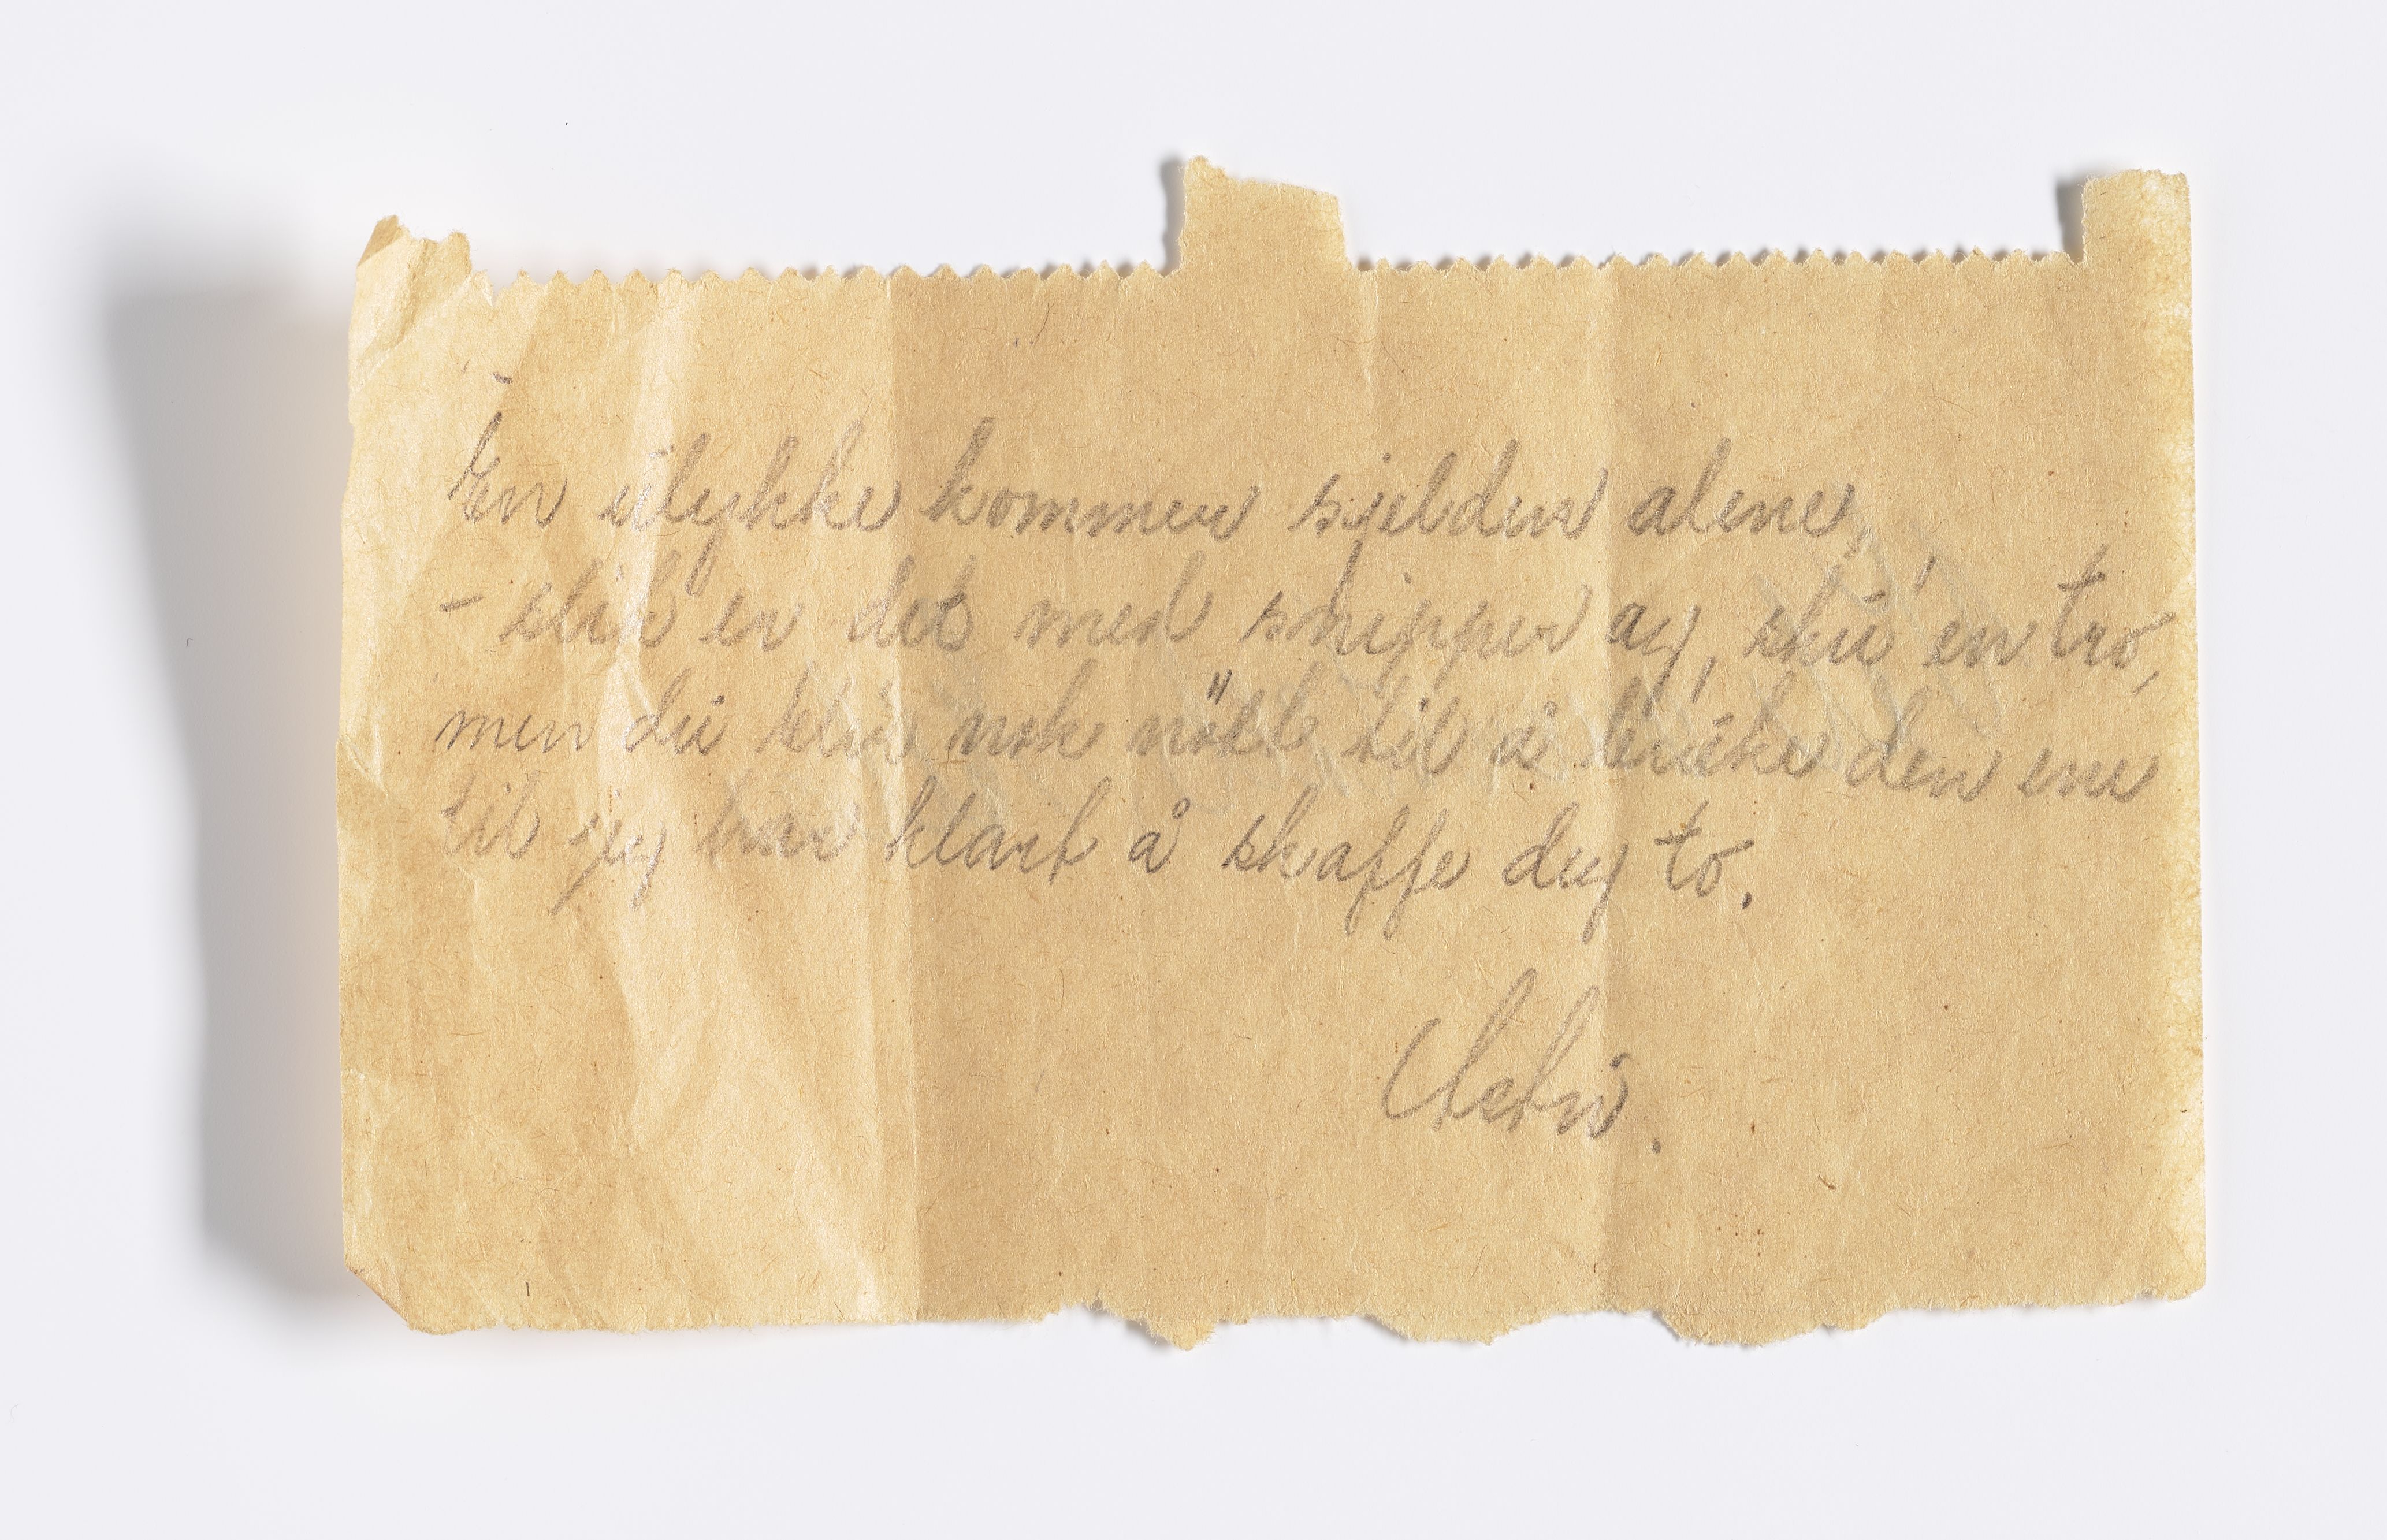 En ulykke kommer sjelden alene,
– slik er det med snipper óg, sku' en tro,
men du blir nok nödt til å bruke den ene
til jeg har klart å skaffe deg to.